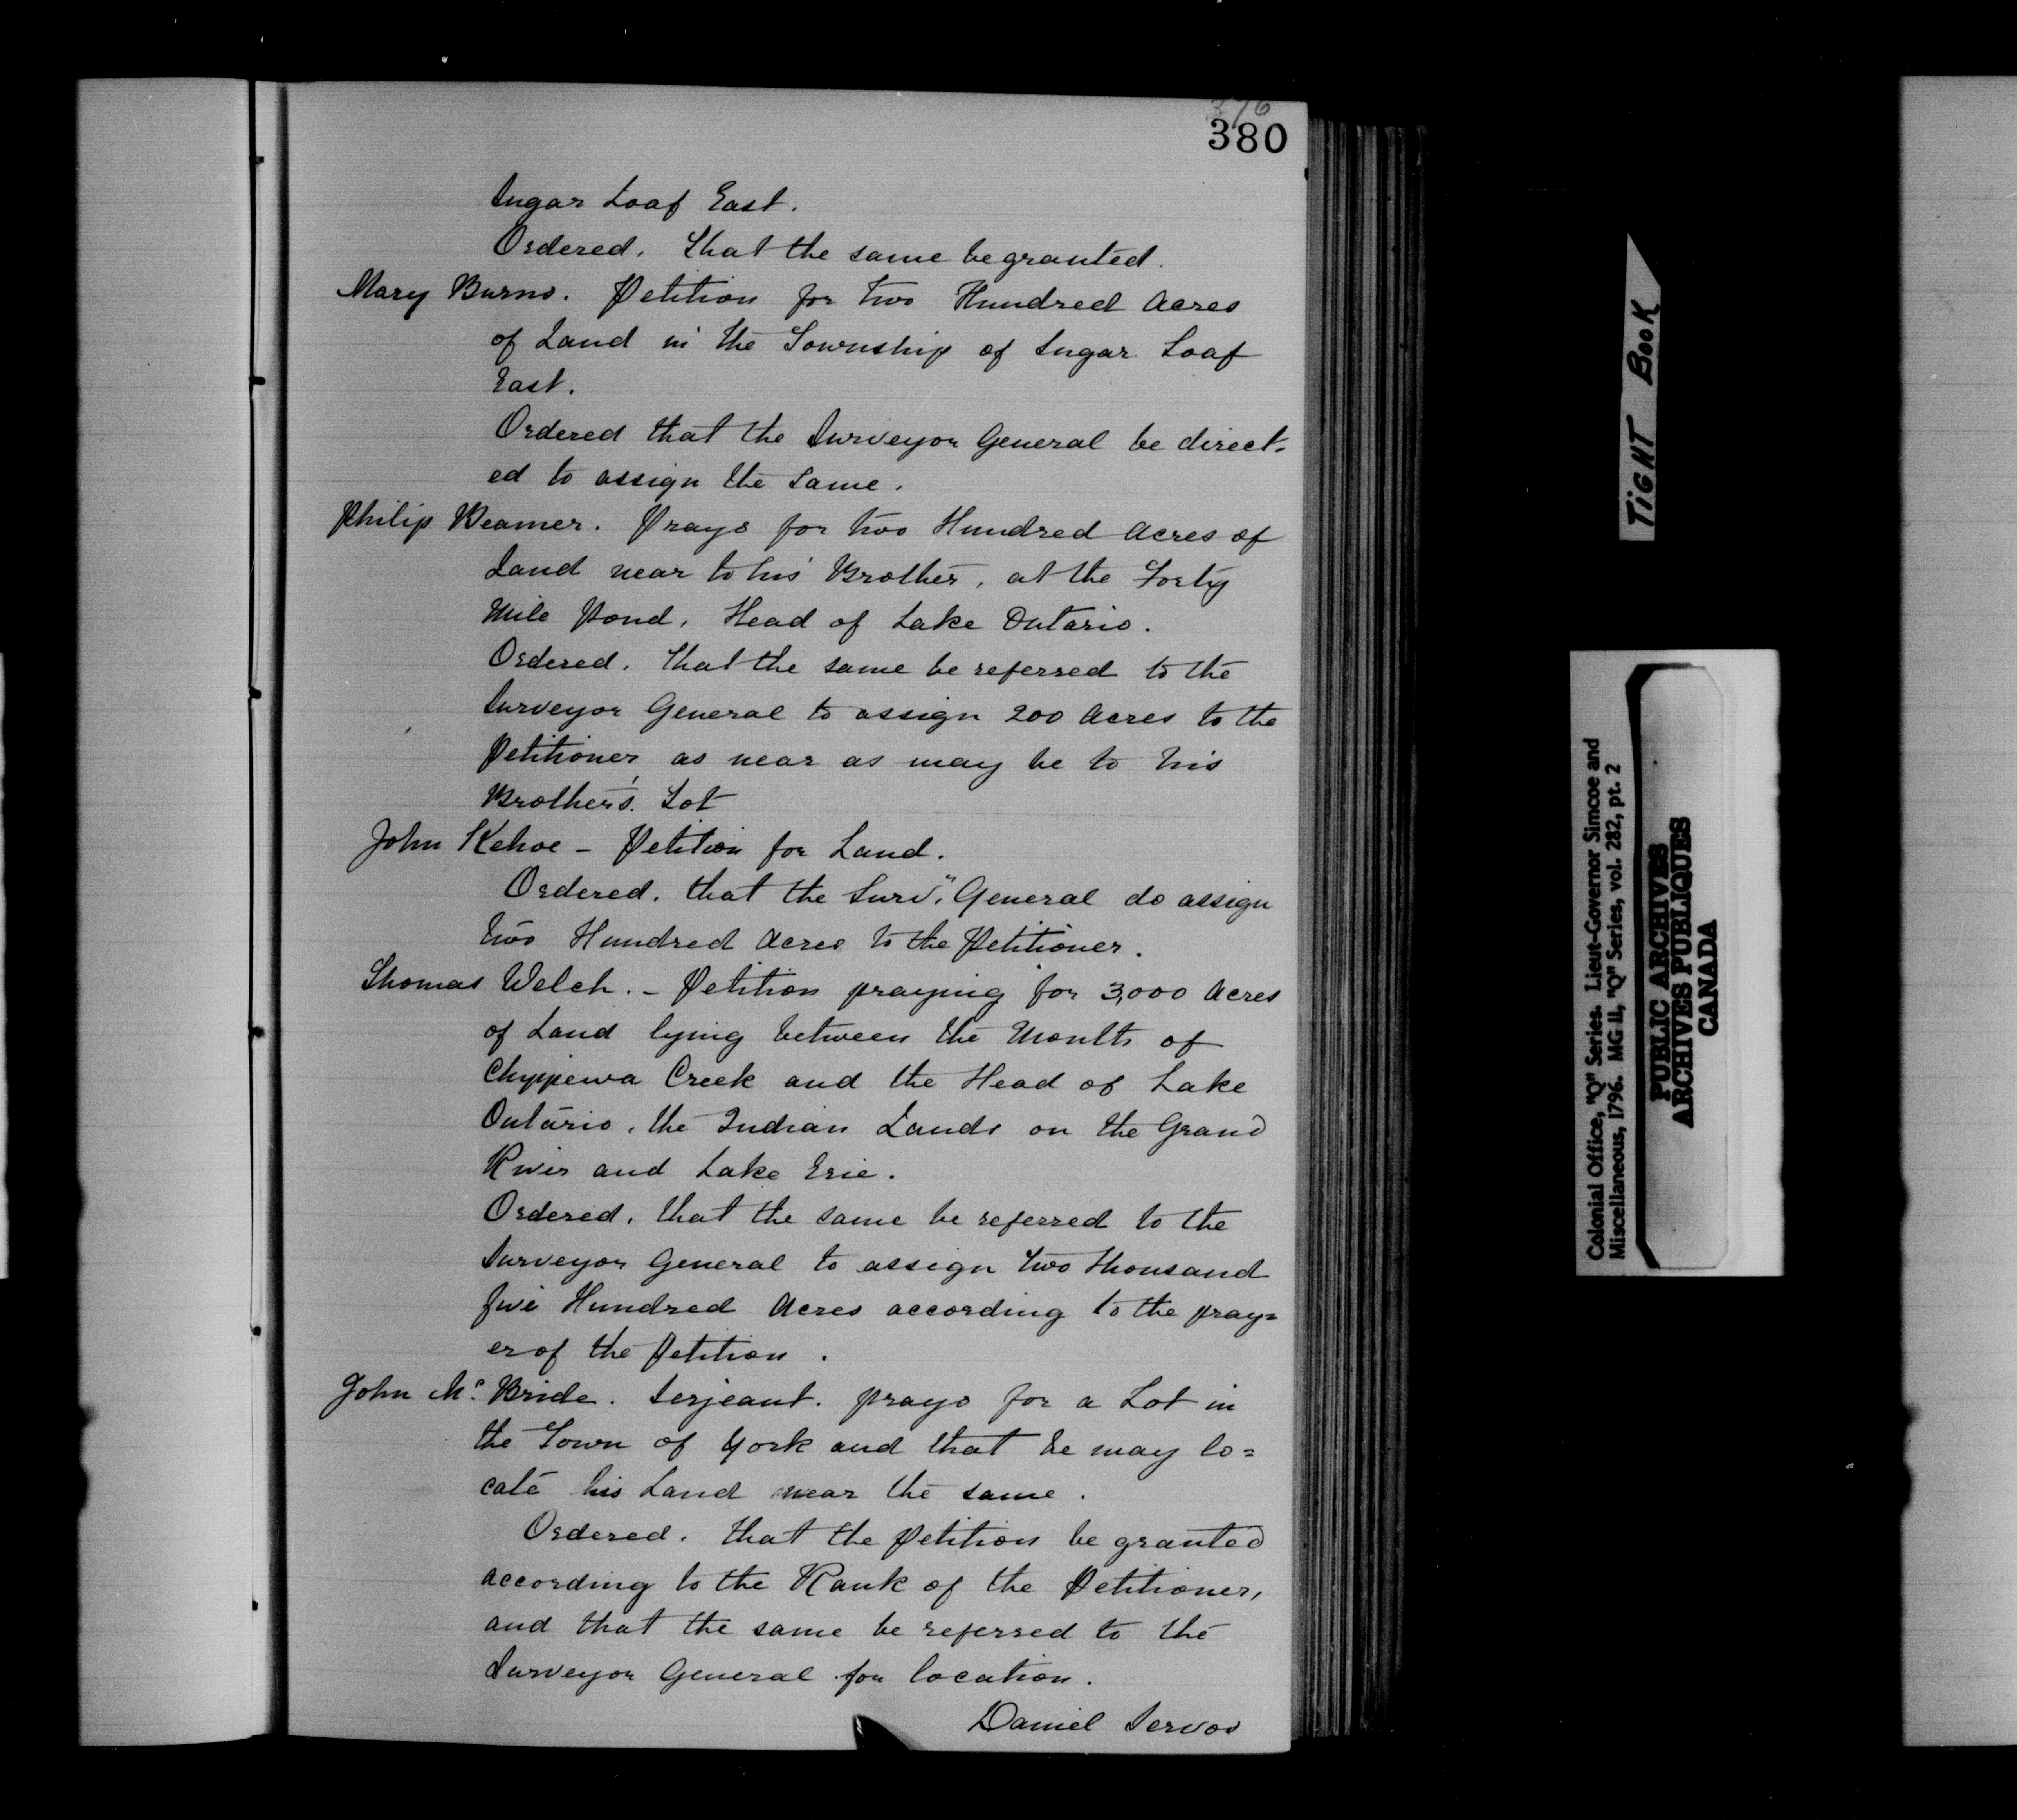 376
380
Sugar Loaf East.
Ordered. That the same be granted.
Mary Burns. Petition for two Hundred Acres
of Land in the Township of Sugar Loaf
East.
Ordered that the Surveyor General be direct-
ed to assign the same.
Philip Beamer. Prays for two Hundred Acres of
Land near to his Brother, at the Forty
Mile Pond, Head of Lake Ontario.
Ordered. that the same be referred to the
Surveyor General to assign 200 Acres to the
Petitioner as near as may be to his
Brother's Lot
John Kehoe - Petition for Land.
Ordered. that the Surv.r General do assign
two Hundred Acres to the Petitioner.
Thomas Welch. - Petition praying for 3,000 Acres
of Land lying between the Mouth of
Chyppewa Creek and the Head of Lake
Ontario, the Indian Lands on the Grand
River and Lake Erie.
Ordered. that the same be referred to the
Surveyor General to assign two thousand
five Hundred Acres according to the pray=
er of the Petition.
John Mc. Bride. Serjeant. prays for a Lot in
the Town of York and that he may lo=
cate his Land near the same.
Ordered. that the Petition be granted
according to the Rank of the Petitioner,
and that the same be referred to the
Surveyor General for location.
Daniel Servos
TIGHT BOOK
Colonial Office, "Q" Series. Lieut-Governor Simcoe and
Miscellaneous, 1796. MG 11, "Q" Series, vol. 282, pt. 2
PUBLIC ARCHIVES
ARCHIVES PUBLIQUES
CANADA